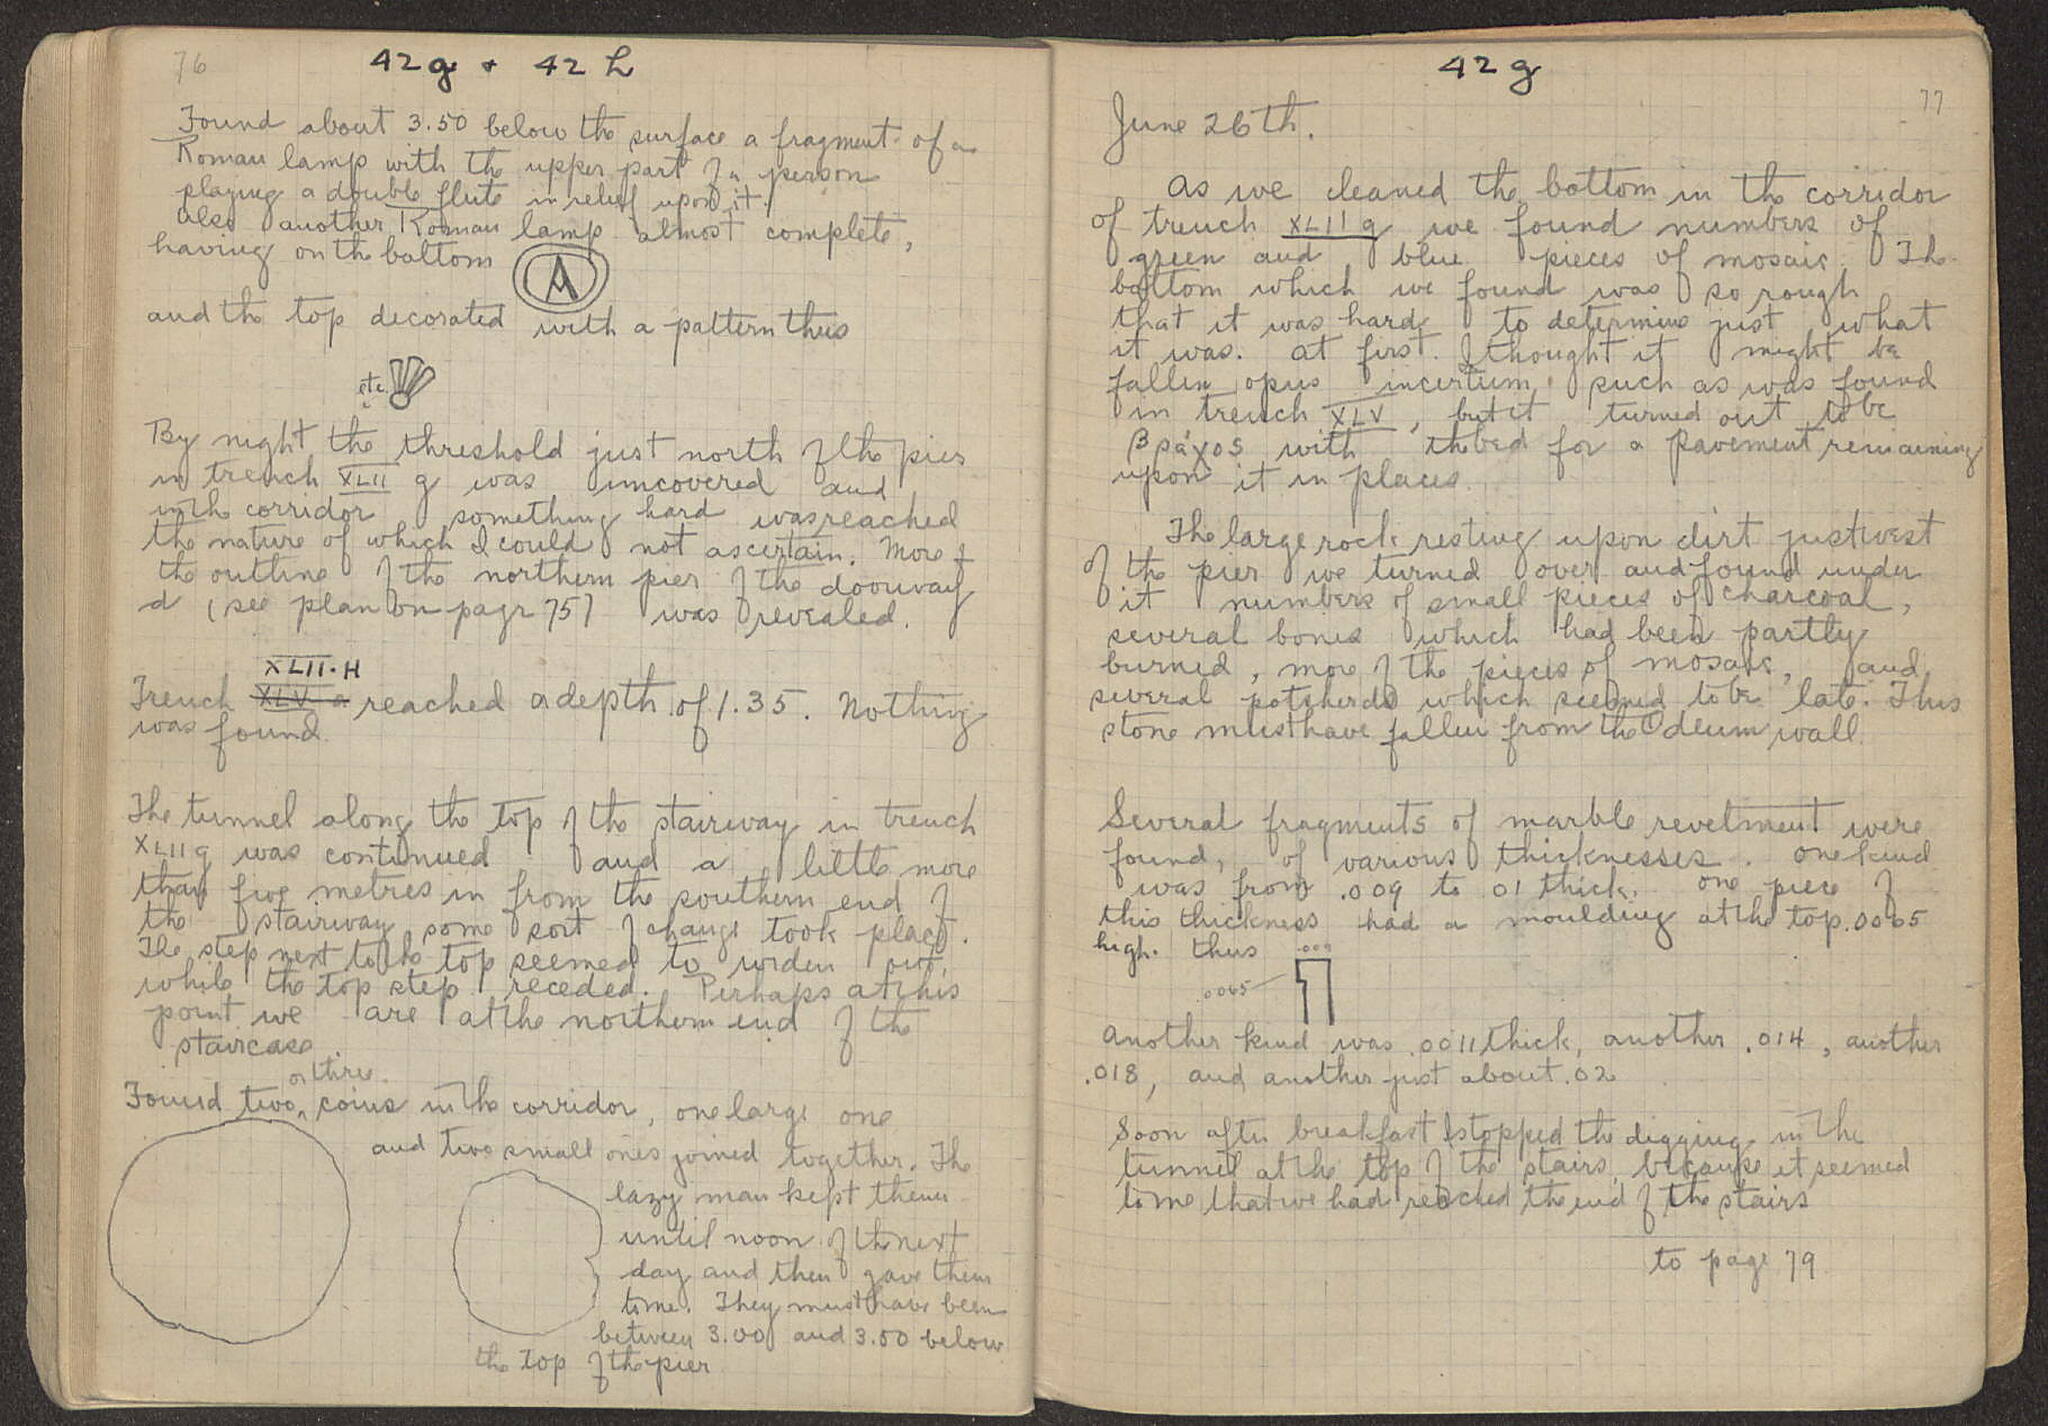 76
42g + 42h
Found about 3.50 below the surface a fragment of a
Roman lamp with the upper part of a person
playing a double flute in relief upon it.
Also another Roman lamp almost complete,
having on the bottom
A
and the top decorated with a pattern thus
etc.
By night the threshold just north of the pier
in trench XLII g was uncovered and
in the corridor something hard was reached
the nature of which I could not ascertain. More of
the outline of the northern pier of the doorway
d (see plan on page 75) was revealed.
XLII·H
Trench XLV a reached a depth of 1.35. Nothing
was found.
The tunnel along the top of the stairway in trench
XLII g was continued and a little more
than five metres in from the southern end of
the stairway some sort of change took place.
The step next to the top seemed to widen out,
while the top step receded. Perhaps at this
point we are at the northern end of the
staircase
or three
Found two, coins in the corridor, one large one
and two small ones joined together. The
lazy man kept them
until noon of the next
day and then gave them
to me. They must have been
between 3.00 and 3.50 below
the top of the pier
42g
77
June 26th.
As we cleaned the bottom in the corridor
of trench XLII g we found numbers of
green and blue pieces of mosaic. The
bottom which we found was so rough
that it was hard to determine just what
it was. At first I thought it might be
fallen opus incertum, such as was found
in trench XLV, but it turned out to be
βράχος with the bed for a pavement remaining
upon it in places.
The large rock resting upon dirt just west
of the pier we turned over and found under
it numbers of small pieces of charcoal,
several bones which had been partly
burned, more of the pieces of mosaic, and
several potsherds which seemed to be late. This
stone must have fallen from the Odeum wall.
Several fragments of marble revetment were
found, of various thicknesses. One kind
was from .009 to .01 thick. One piece of
this thickness had a moulding at the top .0065
high. thus
.009
.0065
Another kind was .0011 thick, another .014, another
.018, and another just about .02
Soon after breakfast I stopped the digging in the
tunnel at the top of the stairs, because it seemed
to me that we had reached the end of the stairs
to page 79